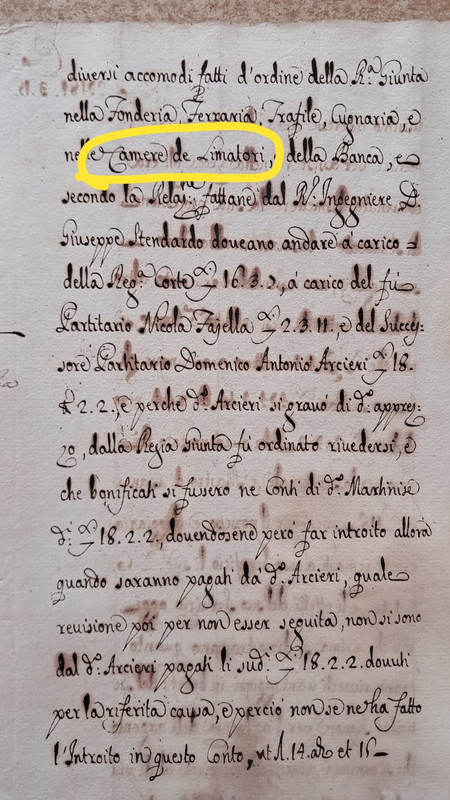 diversi accomodi fatti d'ordine della R.ª Giunta
nella Fonderia, Ferraria, Trafile, Cugnaria, e
nelle Camere de Limatori, e della Banca, e
secondo la Relaz.ne fattane dal R.º Ingegniere D.
Giuseppe Stendardo doveano andare à carico =
della Reg.ª Corte 16.3.2, à carico del fù
Partitario Nicola Fajella 2.3.11., e del Succes-
sore Partitario Domenico Antonio Arcieri 18.
2.2., e perche d.º Arcieri si gravò di d.º apprez-
zo, dalla Regia Giunta fù ordinato rivedersi, e
che bonificati si fussero ne Conti di d.º Martinise
d.i 18.2.2., dovendosene però far introito allora
quando saranno pagati da d.º Arcieri, quale
revisione poi per non esser seguita, non si sono
dal d.º Arcieri pagati li sud.i 18.2.2. dovuti
per la riferita causa, e perciò non se ne ha fatto
l'Introito in questo Conto, ut f. 14. et 15